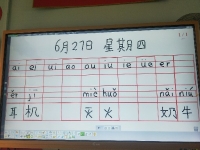 6月27日 星期四
ai ei ui ao ou iu ie ue er
ěr jī miè huǒ nǎi niú
耳 机 灭 火 奶 牛